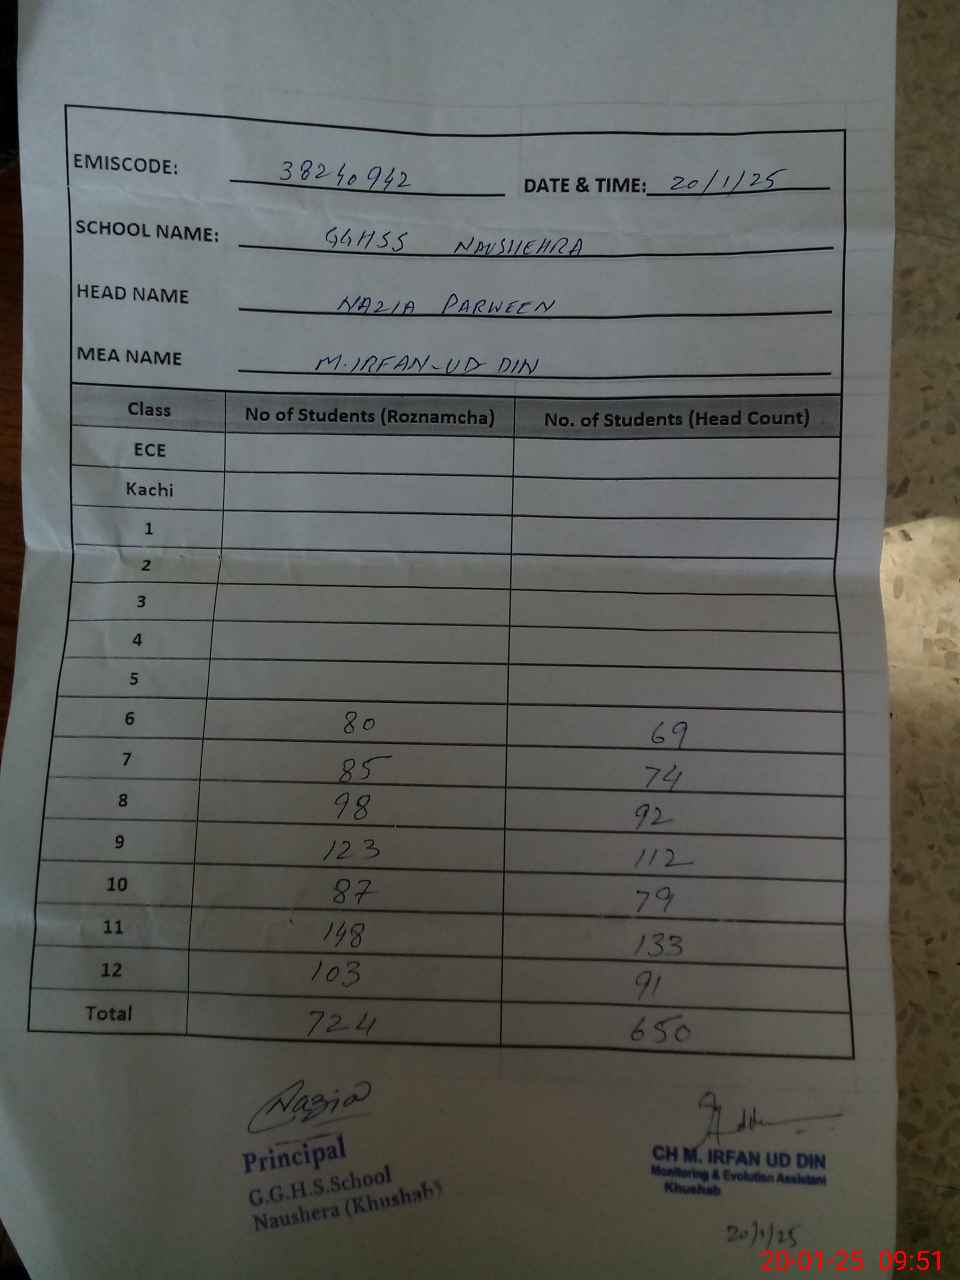 EMISCODE: 38240942 DATE & TIME: 20/1/25
SCHOOL NAME: GGHSS NAUSHEHRA
HEAD NAME NAZIA PARWEEN
MEA NAME M.IRFAN-UD DIN
Class No of Students (Roznamcha) No. of Students (Head Count)
ECE
Kachi
1
2
3
4
5
6 80 69
7 85 74
8 98 92
9 123 112
10 87 79
11 148 133
12 103 91
Total 724 650
Nazia
Principal
G.G.H.S.School
Naushera (Khushab)
CH M. IRFAN UD DIN
Monitoring & Evolution Assistant
Khushab
20/1/25
20-01-25 09:51